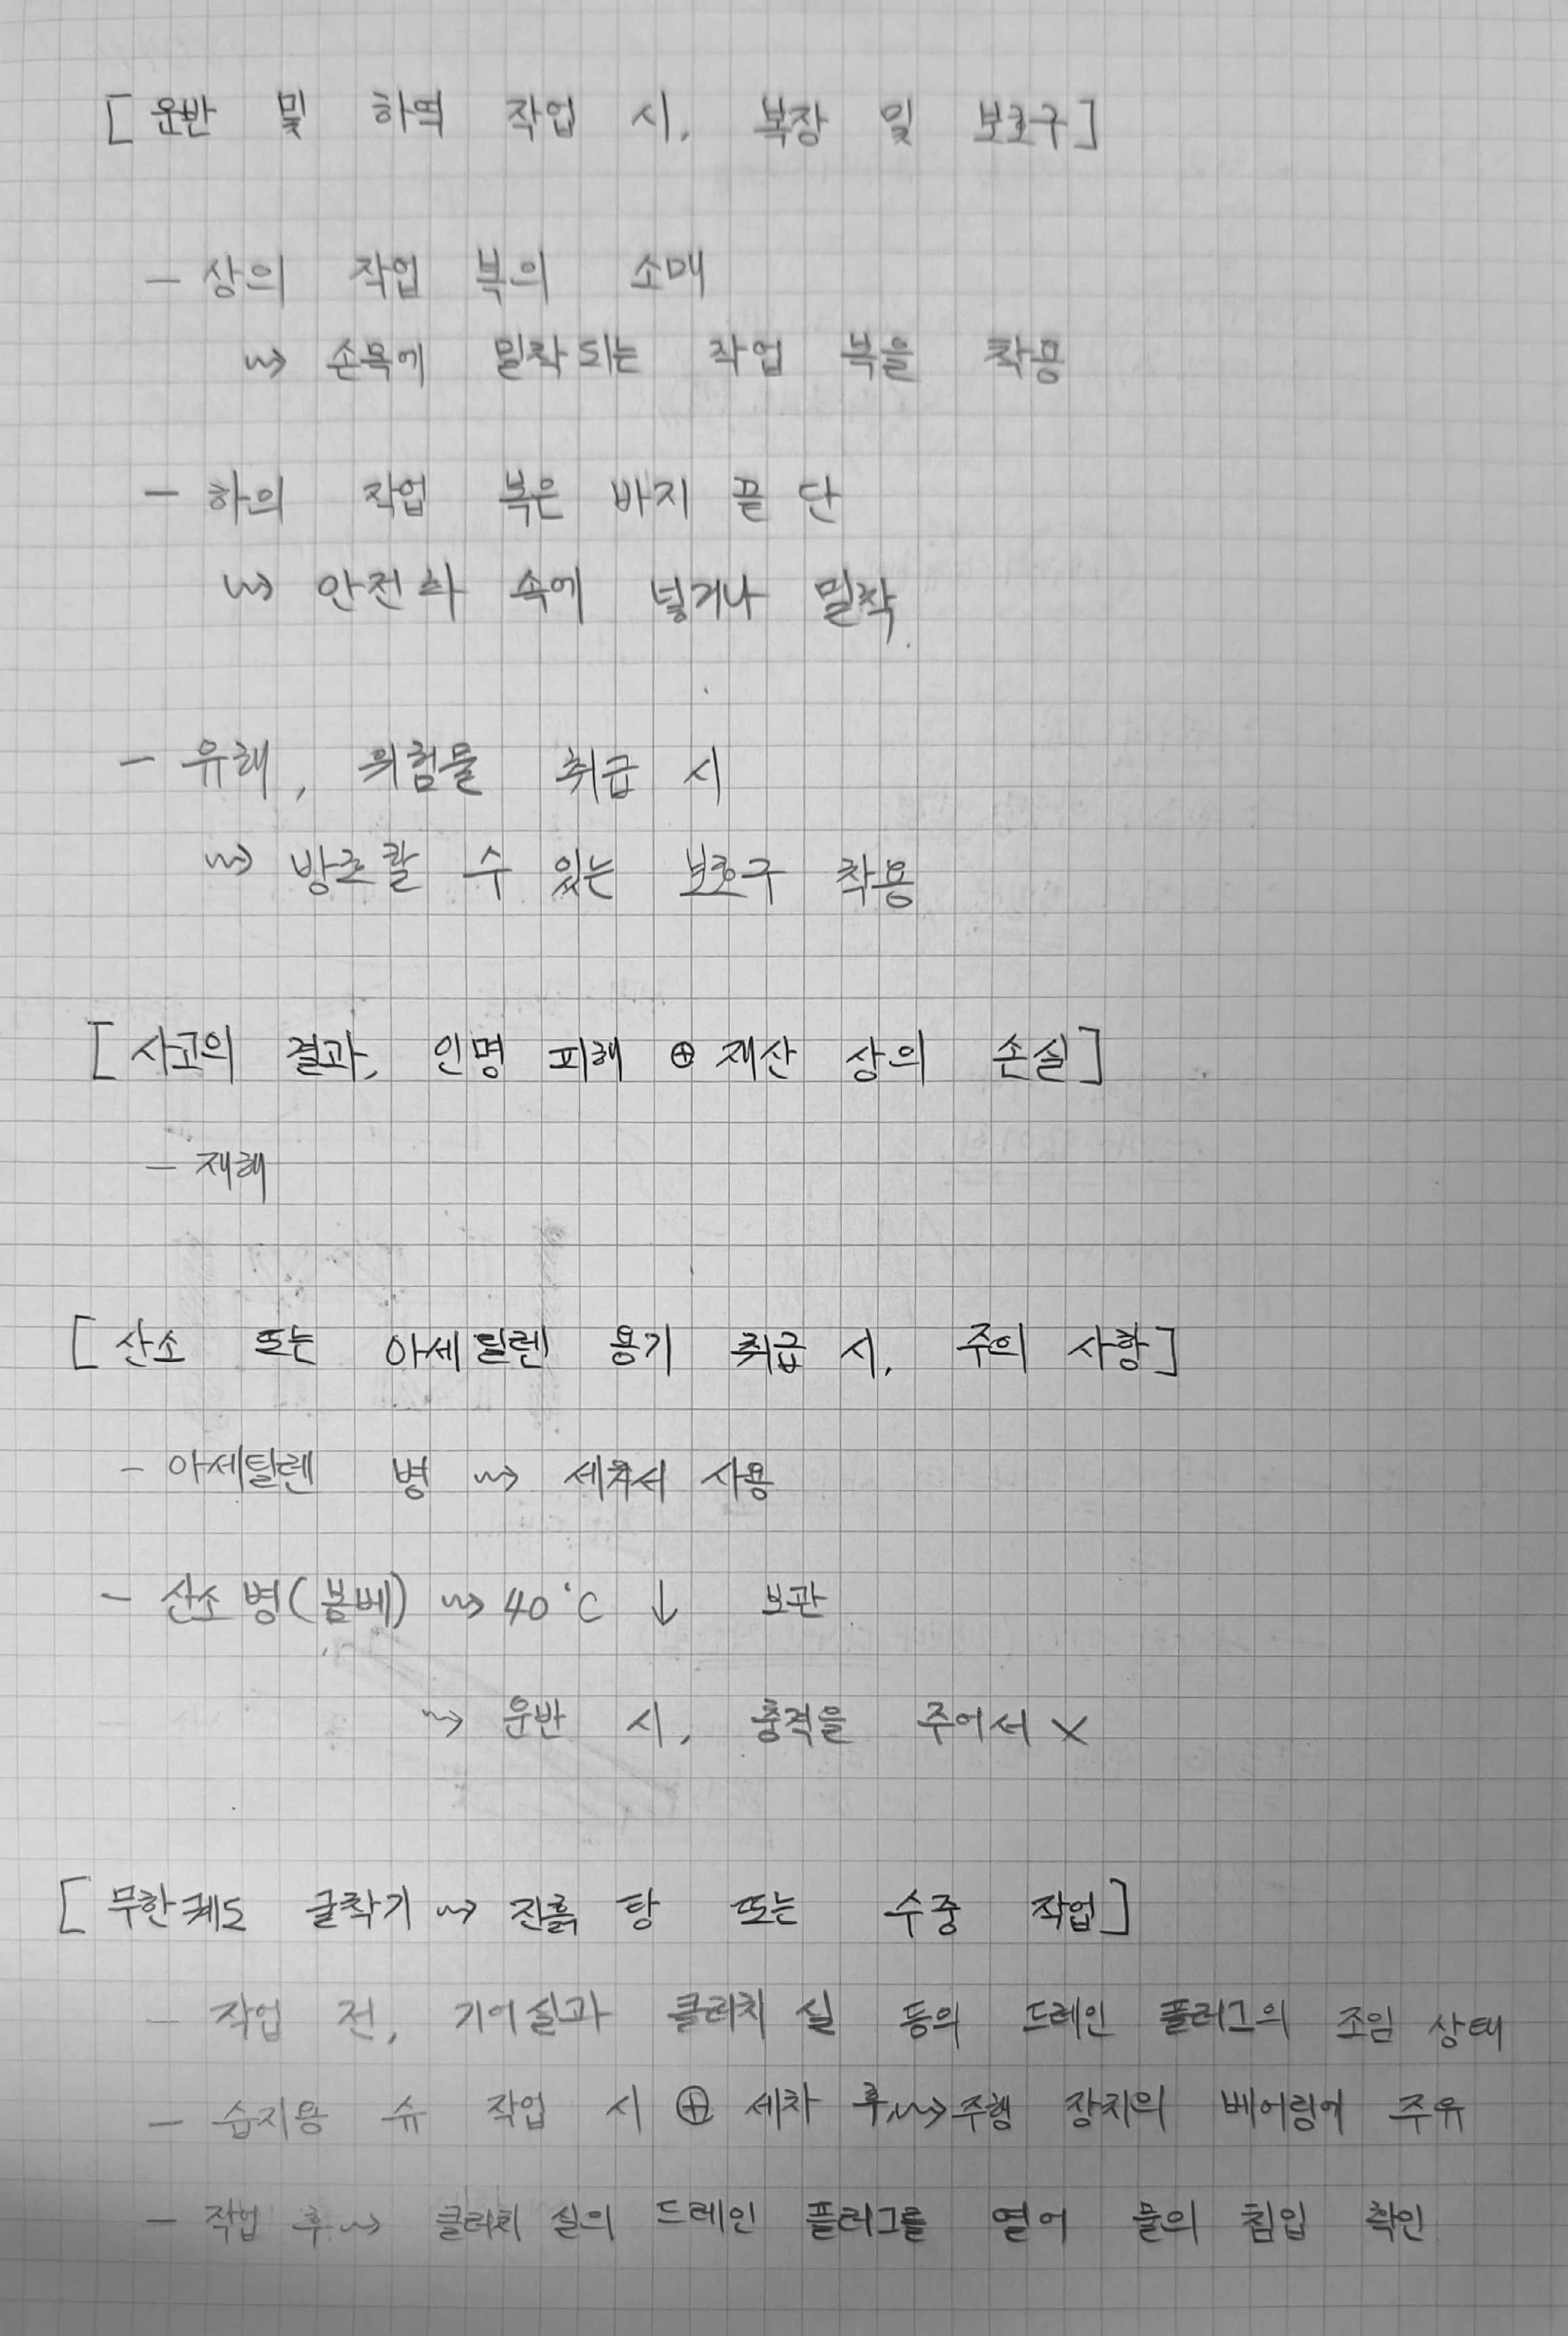 [운반 및 하역 작업 시, 복장 및 보호구]
- 상의 작업 복의 소매
↝ 손목에 밀착되는 작업 복을 착용
- 하의 작업 복은 바지 끝 단
↝ 안전화 속에 넣거나 밀착.
- 유해, 위험물 취급 시
↝ 방호할 수 있는 보호구 착용
[사고의 결과, 인명 피해 ⊕ 재산 상의 손실]
- 재해
[산소 또는 아세틸렌 용기 취급 시, 주의 사항]
- 아세틸렌 병 ↝ 세워서 사용
- 산소 병(봄베) ↝ 40°C ↓ 보관
↝ 운반 시, 충격을 주어서 X
[무한궤도 굴착기 ↝ 진흙 탕 또는 수중 작업]
- 작업 전, 기어실과 클러치 실 등의 드레인 플러그의 조임 상태
- 습지용 슈 작업 시 ⊕ 세차 후 ↝ 주행 장치의 베어링에 주유
- 작업 후 ↝ 클러치 실의 드레인 플러그를 열어 물의 침입 확인